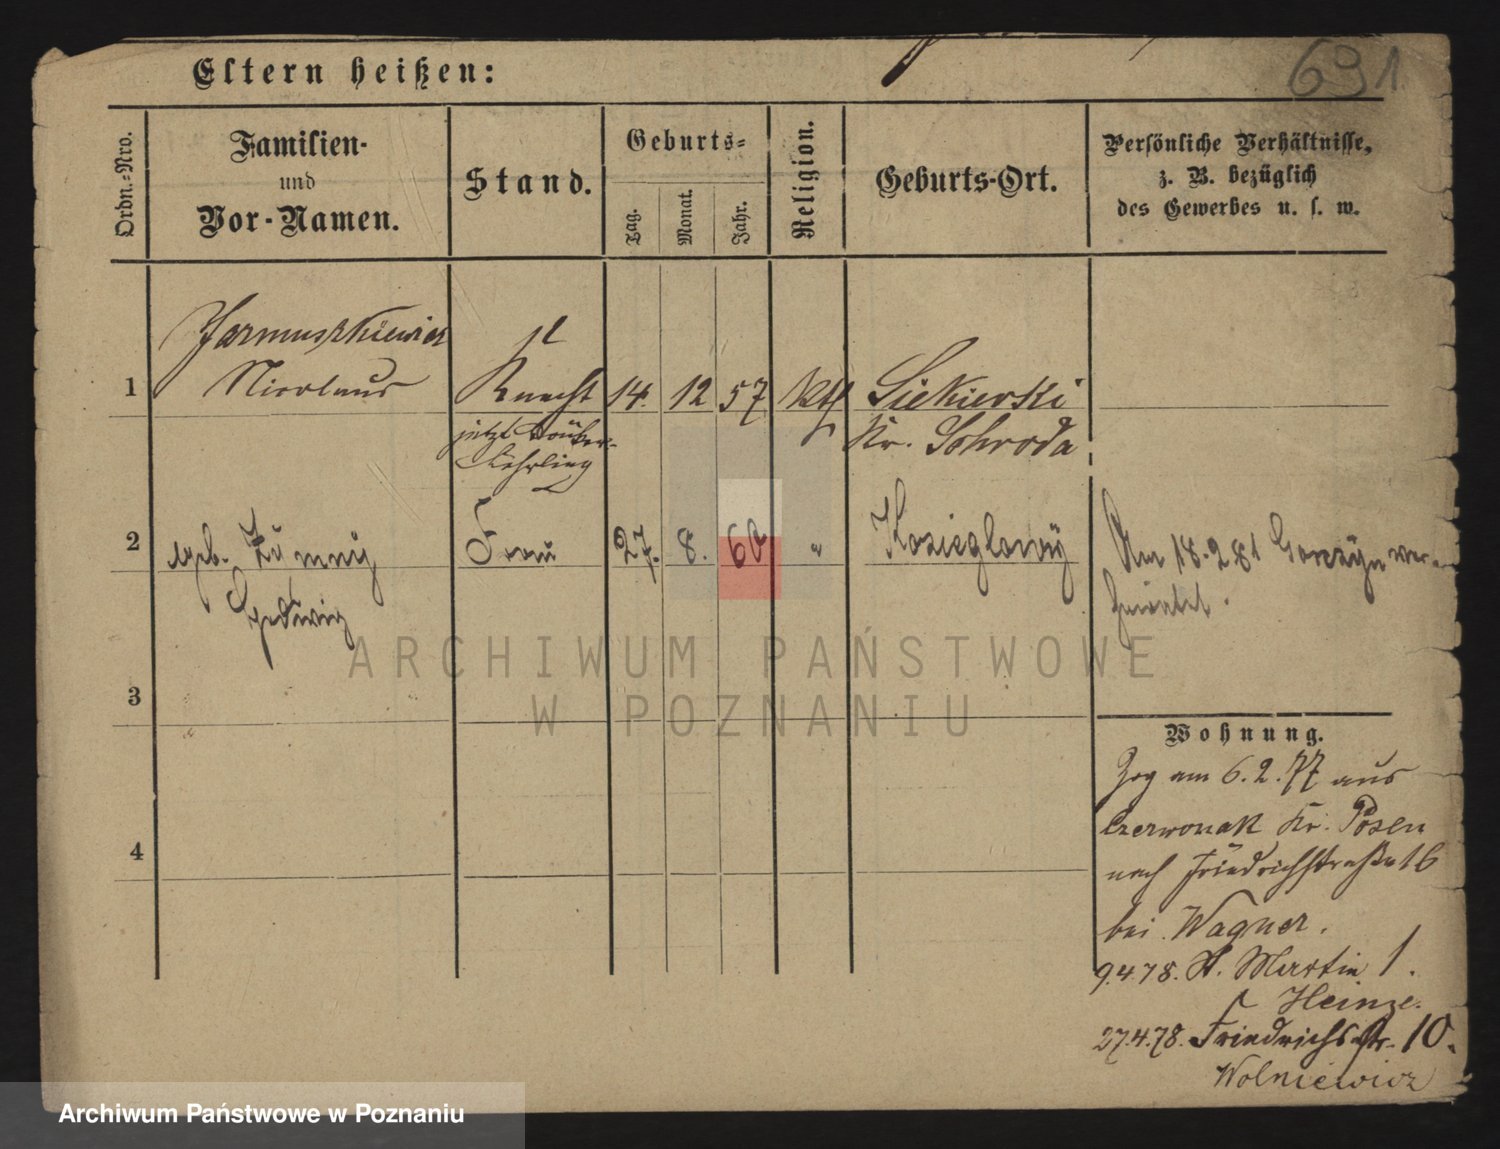 691.
Eltern heißen:
Ordn.-Nro.
Familien-
und
Vor-Namen.
Stand.
Geburts-
Tag.
Monat.
Jahr.
Religion.
Geburts-Ort.
Persönliche Verhältnisse,
z. B. bezüglich
des Gewerbes u. s. w.
Jarmuszkiewicz
1 Nicolaus Knecht 14. 12 57 kth Siekierski
jetzt Kr. Schroda
Lehrling
2 geb. Zumnij Frau 27. 8. 60 " Kozieglowy Am 18.2.81 Gorczyn ver-
Hedwig heiratet.
3
Wohnung.
Zog am 6.2.77 aus
Czerwonak Kr. Posen
4
nach Friedrichstraße 16
bei Wagner.
9.4.78. St. Martin 1.
Heinze.
27.4.78. Friedrichsstr. 10.
Wolniewicz
ARCHIWUM PAŃSTWOWE
W POZNANIU
Archiwum Państwowe w Poznaniu